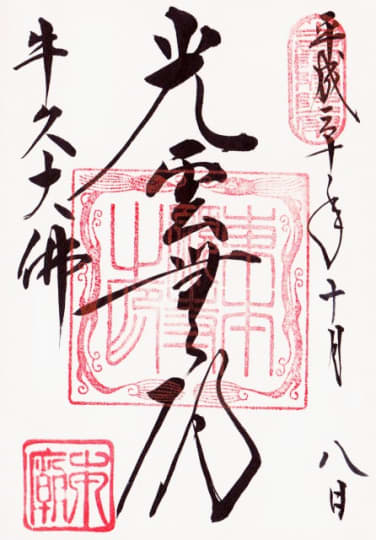 平成二十年十月八日
光雲無碍
牛久大佛
東本願寺之印
本廟